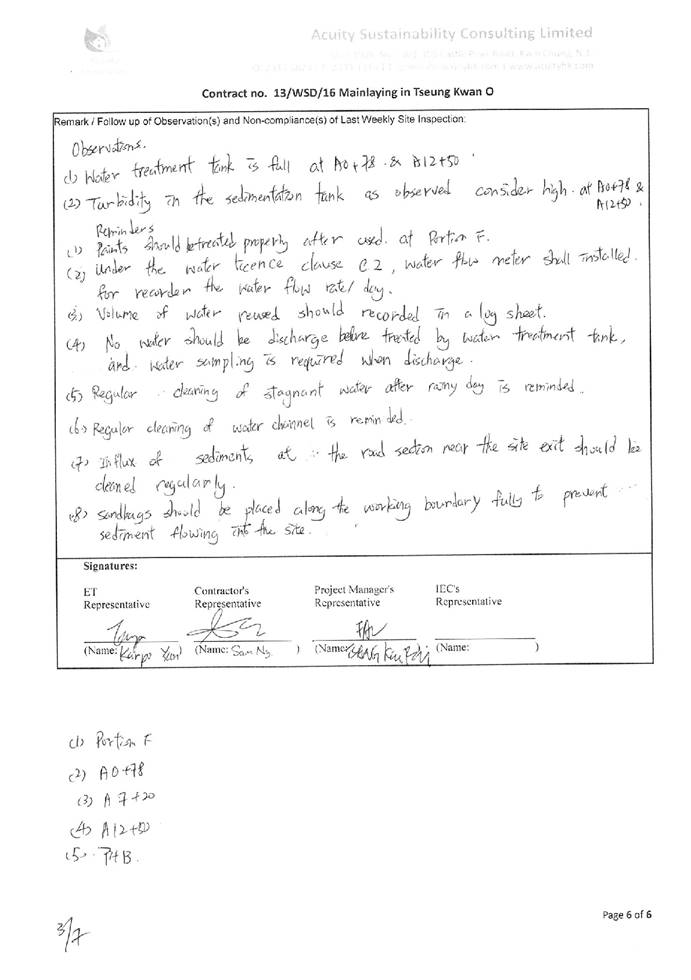 Acuity Sustainability Consulting Limited
Contract no. 13/WSD/16 Mainlaying in Tseung Kwan O
Remark / Follow up of Observation(s) and Non-compliance(s) of Last Weekly Site Inspection:
Observations.
(1) Water treatment tank is full at A0+78 & A12+50
(2) Turbidity in the sedimentation tank as observed consider high at A0+78 &
A12+50.
Reminders
(1) Paints should be treated properly after used at Portion F.
(2) Under the water licence clause C2, water flow meter shall installed.
for recorder the water flow rate/day.
(3) Volume of water reused should recorded in a log sheet.
(4) No water should be discharge before treated by water treatment tank,
and water sampling is required when discharge.
(5) Regular cleaning of stagnant water after rainy day is reminded.
(6) Regular cleaning of water channel is reminded.
(7) Influx of sediments at the road section near the site exit should be
cleaned regularly.
(8) sandbags should be placed along the working boundary fully to prevent
sediment flowing into the site.
Signatures:
ET Contractor's Project Manager's IEC's
Representative Representative Representative Representative
(Name: (Name: Sam Ng ) (Name: (Name: )
(1) Portion F
(2) A0+78
(3) A7+20
(4) A12+50
(5) PHB.
Page 6 of 6
3/7